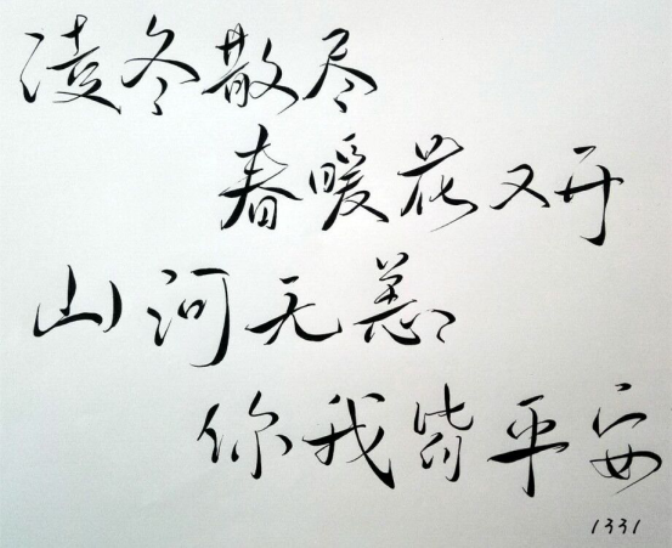 凌冬散尽
春暖花又开
山河无恙
你我皆平安
1331